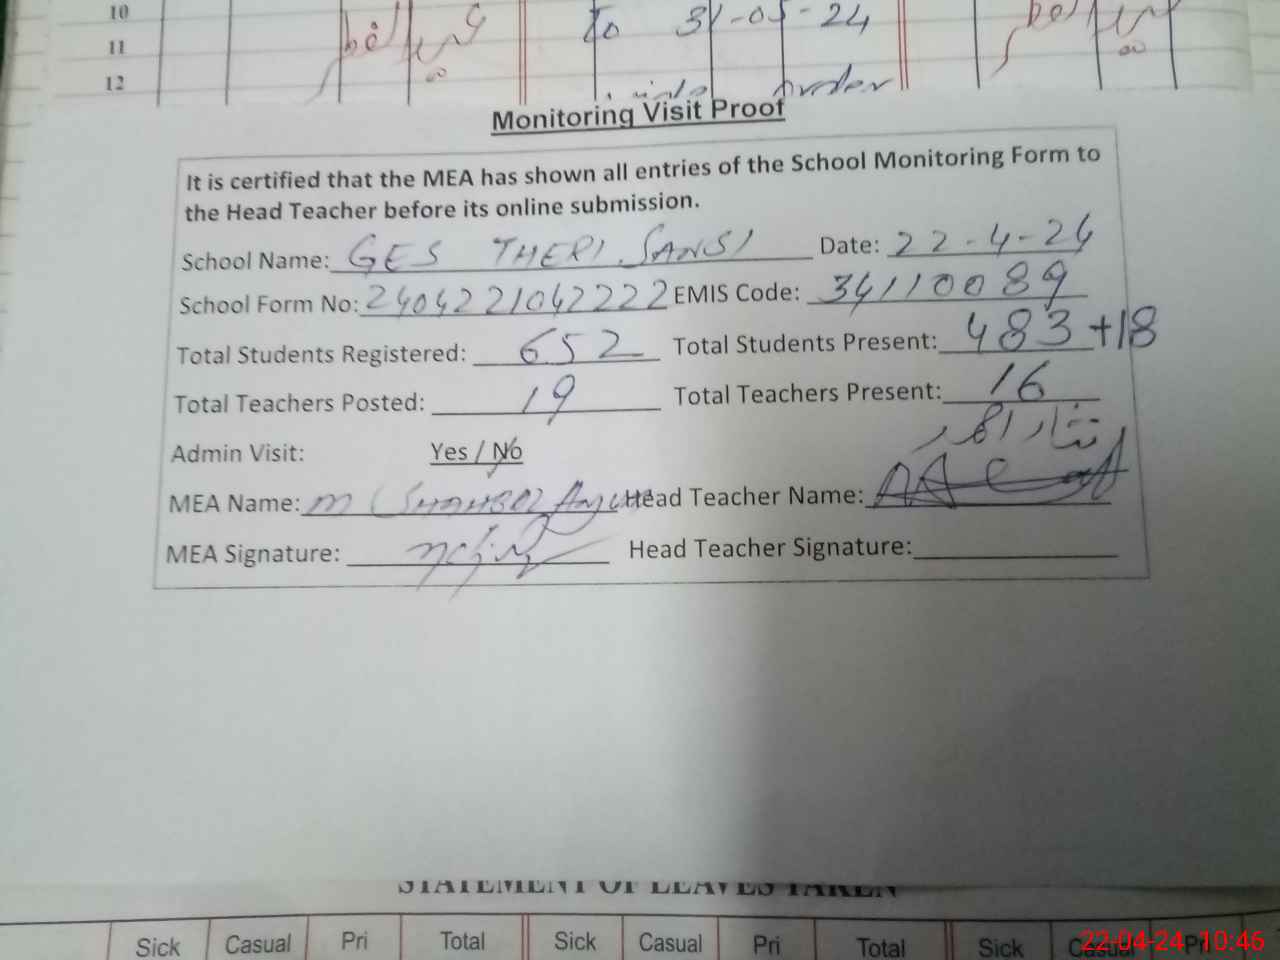 10
11
12
to 31-05-24
order
Monitoring Visit Proof
It is certified that the MEA has shown all entries of the School Monitoring Form to
the Head Teacher before its online submission.
School Name: GES THERI SANSI Date: 22-4-24
School Form No: 2404221042222 EMIS Code: 34110089
Total Students Registered: 652 Total Students Present: 483+18
Total Teachers Posted: 19 Total Teachers Present: 16
Admin Visit: Yes / No
MEA Name: M Head Teacher Name:
MEA Signature: Head Teacher Signature:
STATEMENT OF LEAVES TAKEN
Sick Casual Pri Total Sick Casual Pri Total Sick Casual Pri
22-04-24 10:46